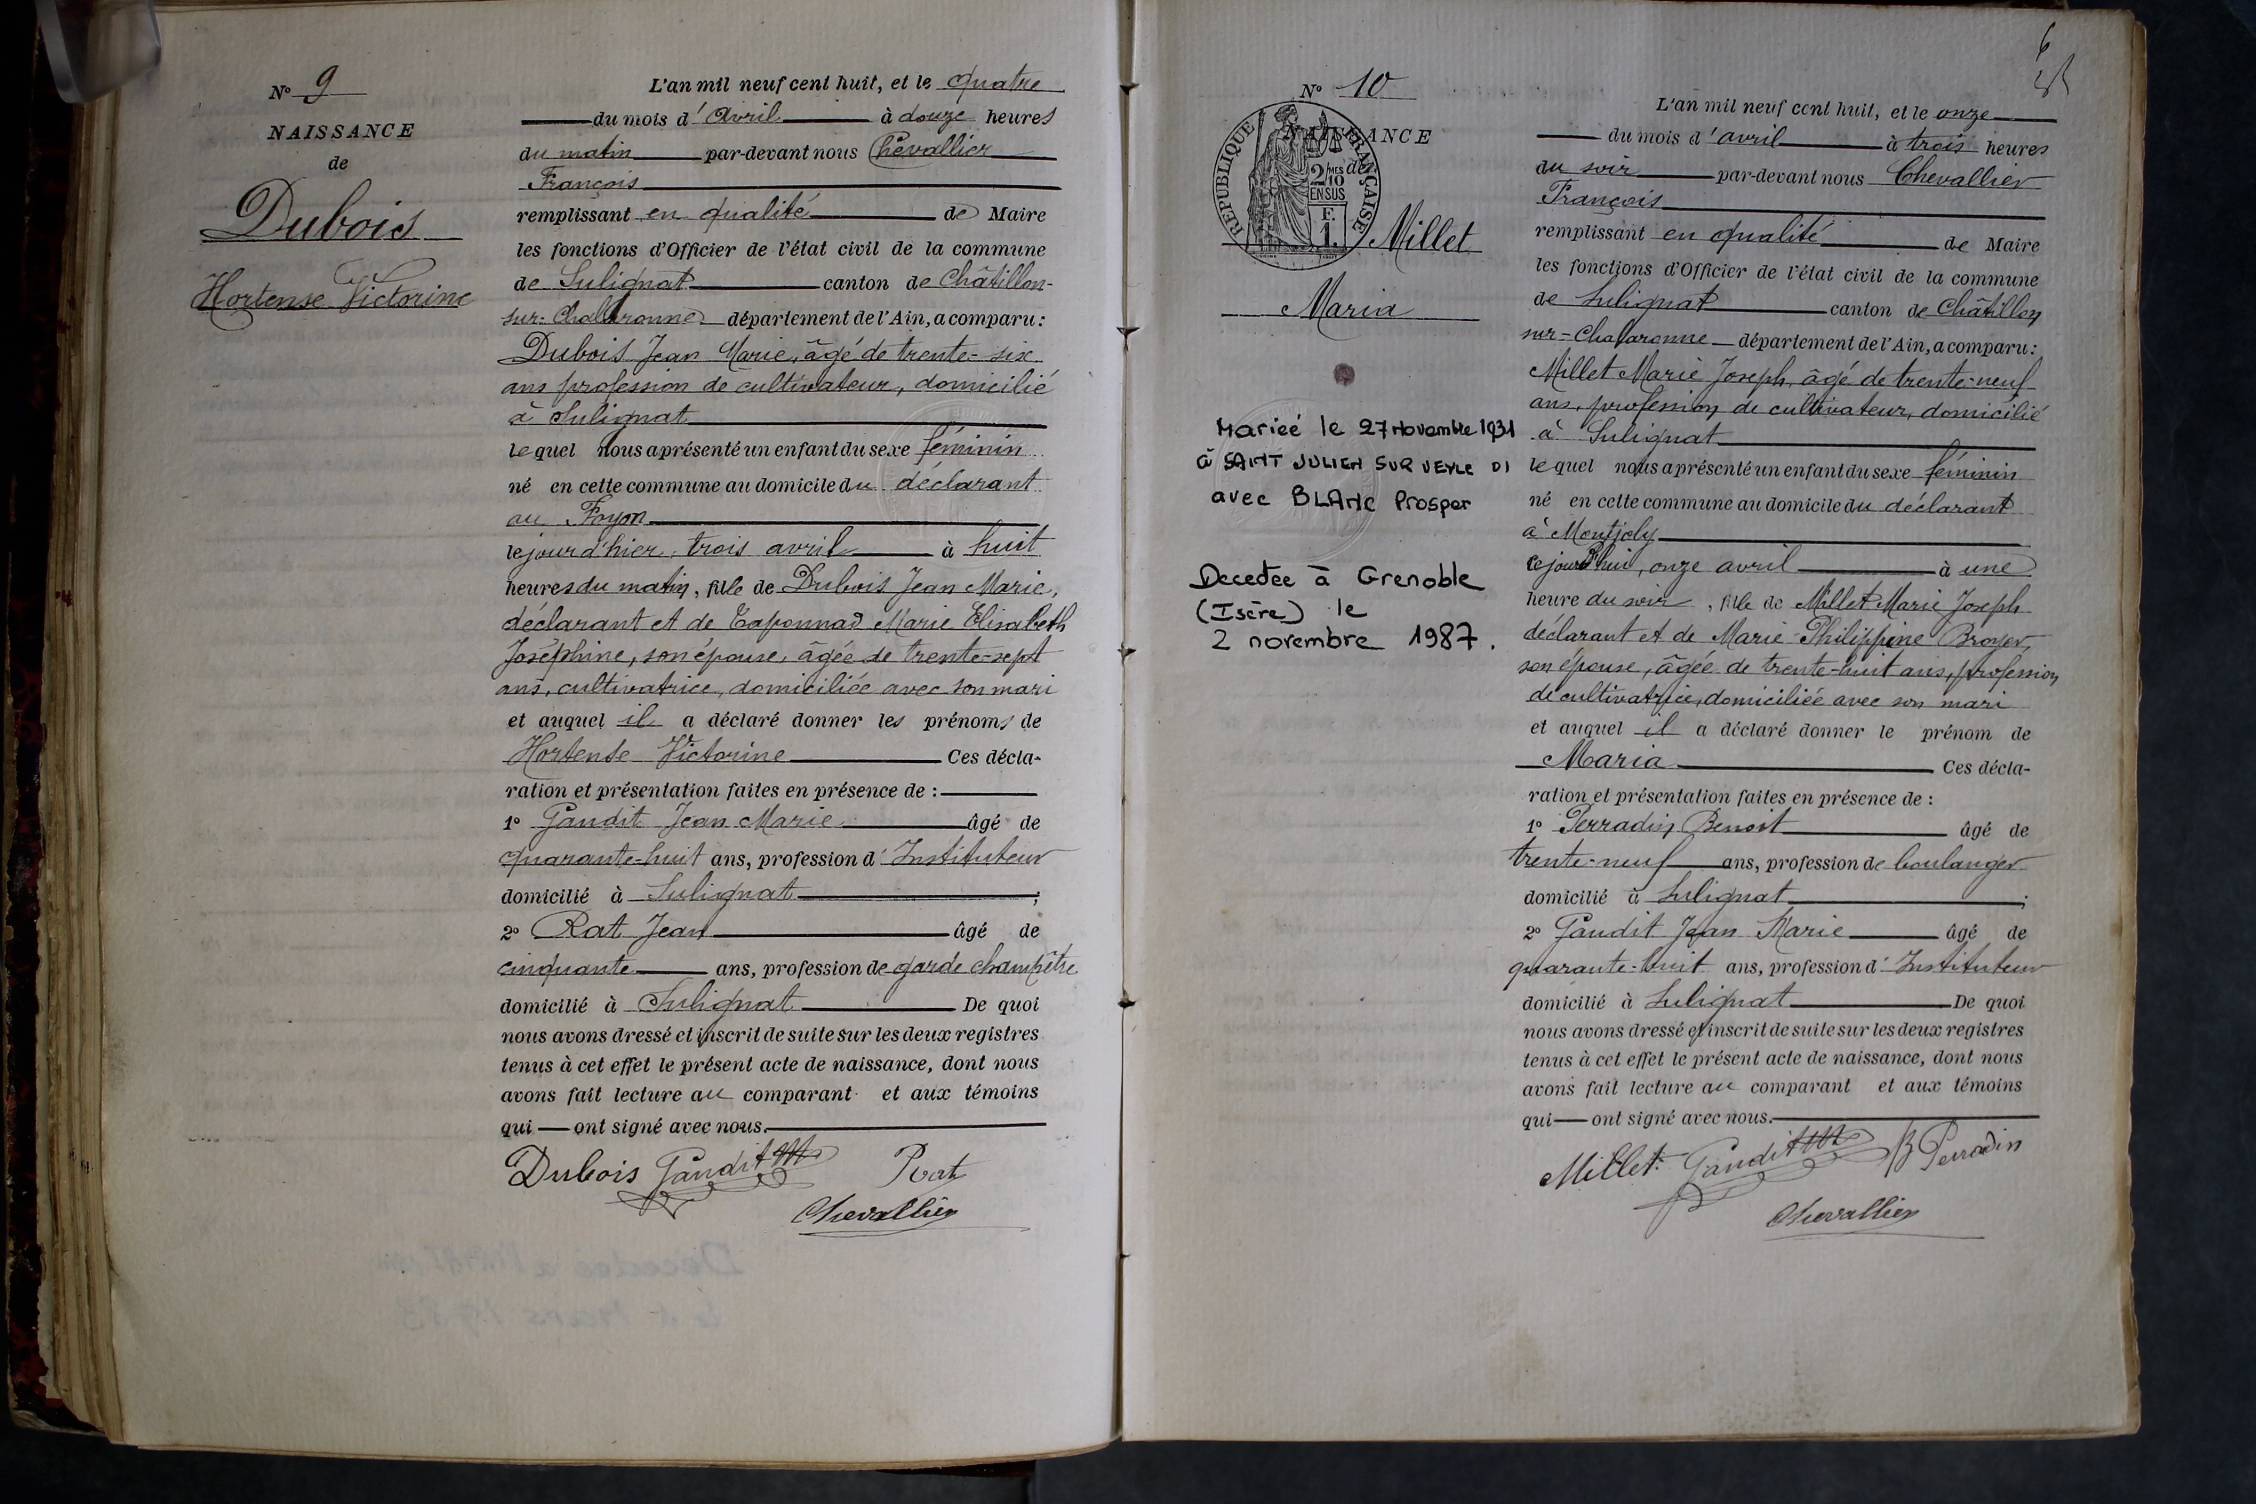 N° 9
NAISSANCE
de
Dubois
Hortense Victorine
L'an mil neuf cent huit, et le quatre
du mois d'Avril à douze heures
du matin par-devant nous Chevallier
François
remplissant en qualité de Maire
les fonctions d'Officier de l'état civil de la commune
de Sulignat canton de Châtillon-
sur-Chalaronne département de l'Ain, a comparu :
Dubois Jean Marie, âgé de trente-six
ans profession de cultivateur, domicilié
à Sulignat
lequel nous a présenté un enfant du sexe féminin
né en cette commune au domicile du déclarant
au Foyon
le jour d'hier, trois avril à huit
heures du matin, fille de Dubois Jean Marie,
déclarant et de Taponnad Marie Elisabeth
Joséphine, son épouse, âgée de trente-sept
ans, cultivatrice, domiciliée avec son mari
et auquel il a déclaré donner les prénoms de
Hortense Victorine Ces décla-
ration et présentation faites en présence de :
1° Gaudit Jean Marie âgé de
quarante-huit ans, profession d'Instituteur
domicilié à Sulignat ;
2° Rat Jean âgé de
cinquante ans, profession de garde champêtre
domicilié à Sulignat De quoi
nous avons dressé et inscrit de suite sur les deux registres
tenus à cet effet le présent acte de naissance, dont nous
avons fait lecture au comparant et aux témoins
qui ont signé avec nous.
Dubois Gaudit Rat
Chevallier
6
N° 10
NAISSANCE
de
RÉPUBLIQUE FRANÇAISE
2 MES
10
EN SUS
F.
1.
Millet
Maria
Mariée le 27 Novembre 1931
à SAINT JULIEN SUR VEYLE 01
avec BLANC Prosper
Decedee à Grenoble
(Isère) le
2 novembre 1987.
L'an mil neuf cent huit, et le onze
du mois d'avril à trois heures
du soir par-devant nous Chevallier
François
remplissant en qualité de Maire
les fonctions d'Officier de l'état civil de la commune
de Sulignat canton de Châtillon
sur-Chalaronne département de l'Ain, a comparu :
Millet Marie Joseph, âgé de trente-neuf
ans, profession de cultivateur, domicilié
à Sulignat
lequel nous a présenté un enfant du sexe féminin
né en cette commune au domicile du déclarant
à Montjoly
ce jourd'hui, onze avril à une
heure du soir, fille de Millet Marie Joseph
déclarant et de Marie Philippine Broyer,
son épouse, âgée de trente-huit ans, profession
de cultivatrice, domiciliée avec son mari
et auquel il a déclaré donner le prénom de
Maria Ces décla-
ration et présentation faites en présence de :
1° Perradin Benoit âgé de
trente-neuf ans, profession de boulanger
domicilié à Sulignat ;
2° Gaudit Jean Marie âgé de
quarante-huit ans, profession d'Instituteur
domicilié à Sulignat De quoi
nous avons dressé et inscrit de suite sur les deux registres
tenus à cet effet le présent acte de naissance, dont nous
avons fait lecture au comparant et aux témoins
qui ont signé avec nous.
Millet Gaudit B Perradin
Chevallier